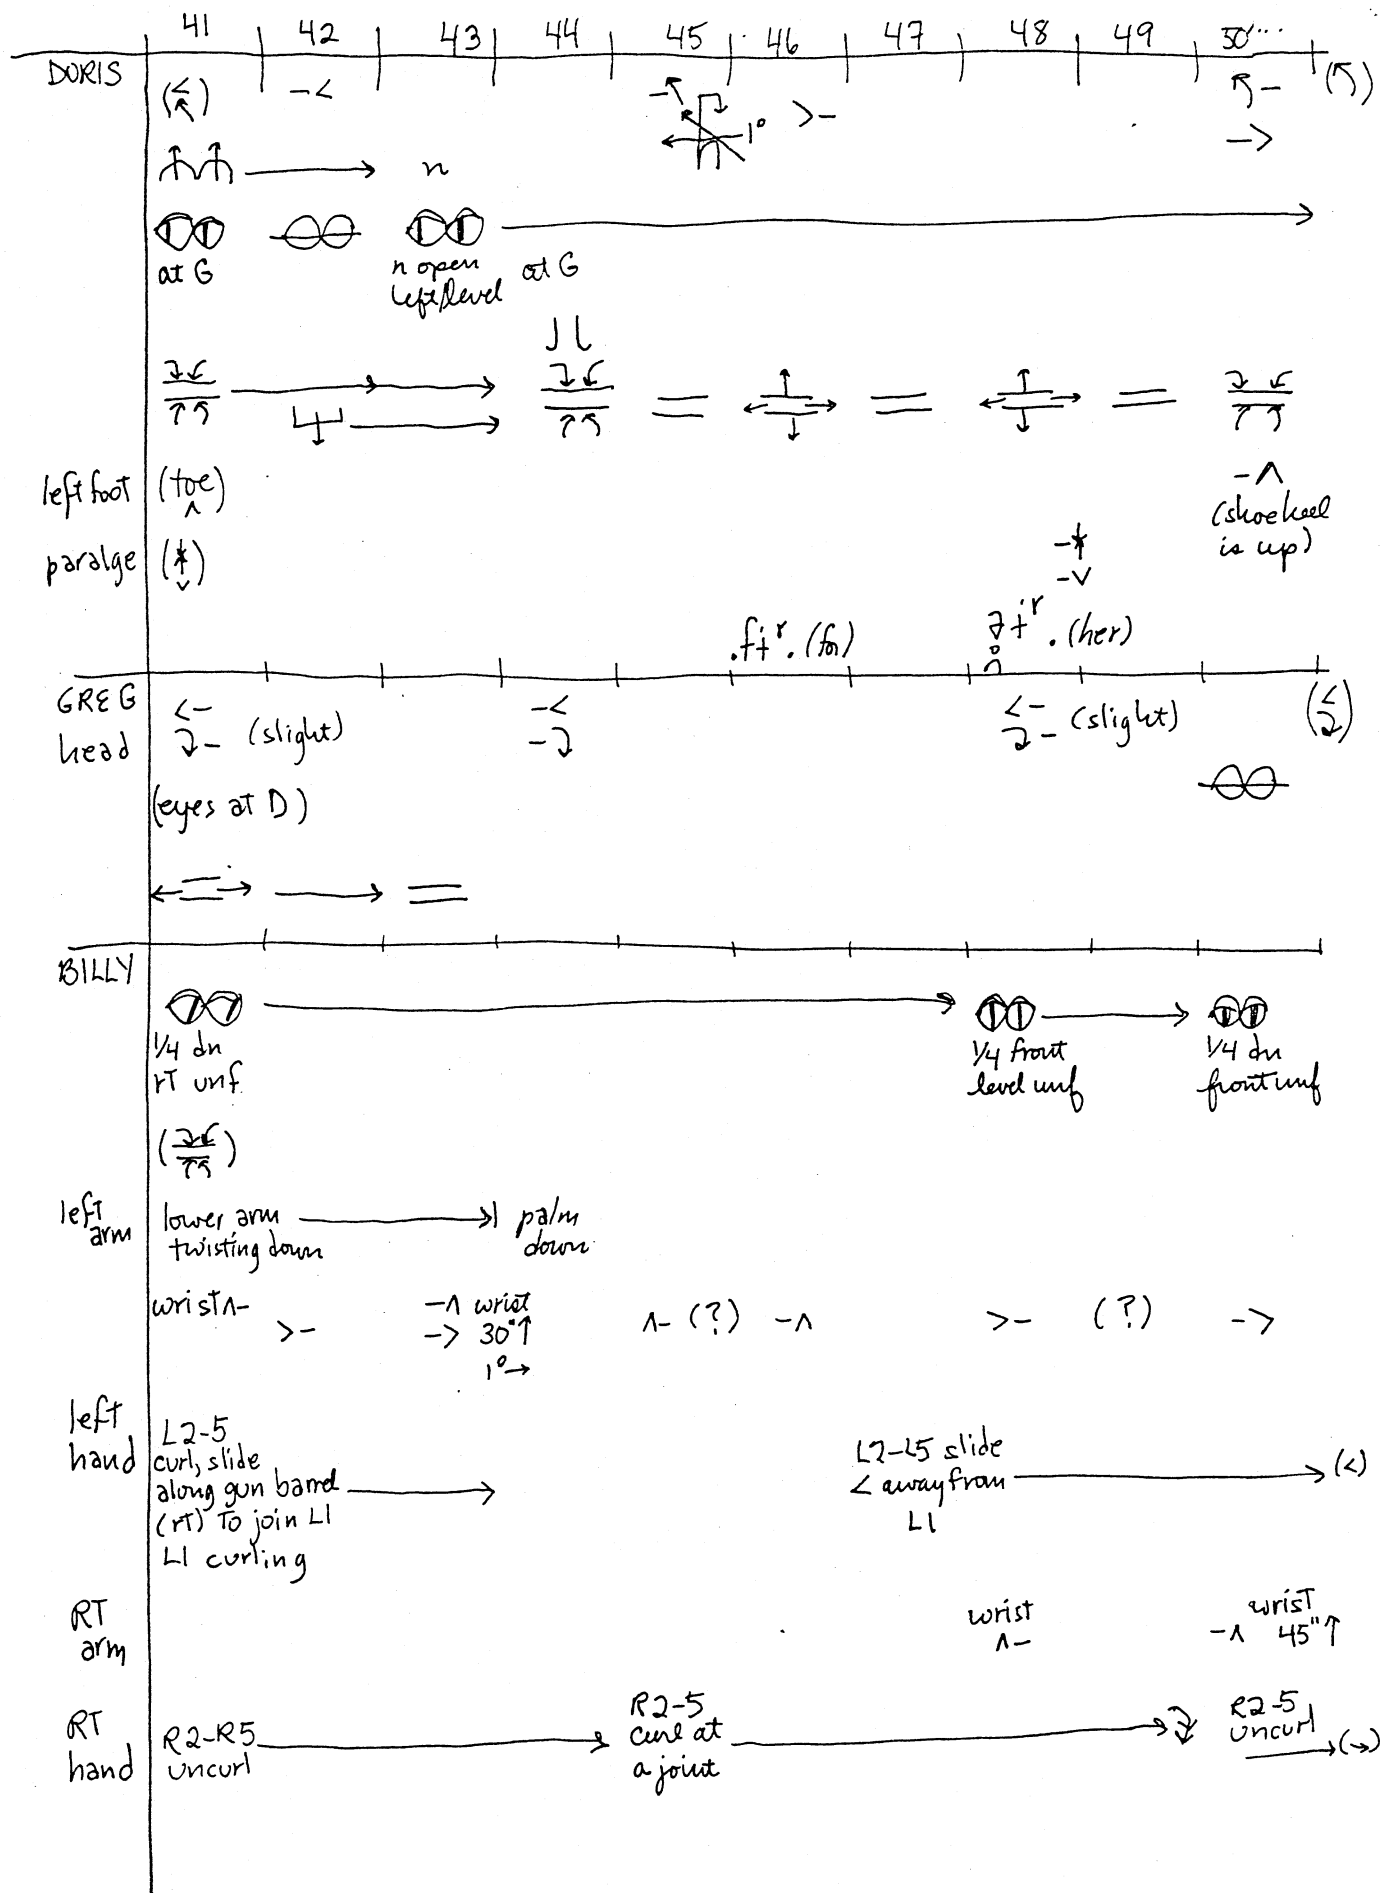 41 42 43 44 45 46 47 48 49 50...
DORIS
1°
n
at G
n open
left/level
at G
left foot (toe)
(shoe heel
is up)
paralge
.f+r. (for)
(her)
GREG
head
(slight)
(slight)
(eyes at D)
BILLY
1/4 dn
rT unf.
1/4 front
level unf
1/4 dn
front unf
left
arm
lower arm
twisting down
palm
down
wrist ^-
>-
-^ wrist
-> 30"↑
1°→
^- (?) -^
>- (?) ->
left
hand
L2-5
curl, slide
along gun barrel
(rT) To join L1
L1 curling
L2-L5 slide
< away from
L1
(<)
RT
arm
wrist
^-
wrist
-^ 45"↑
RT
hand
R2-R5
uncurl
R2-5
curl at
a joint
R2-5
uncurl
(→)